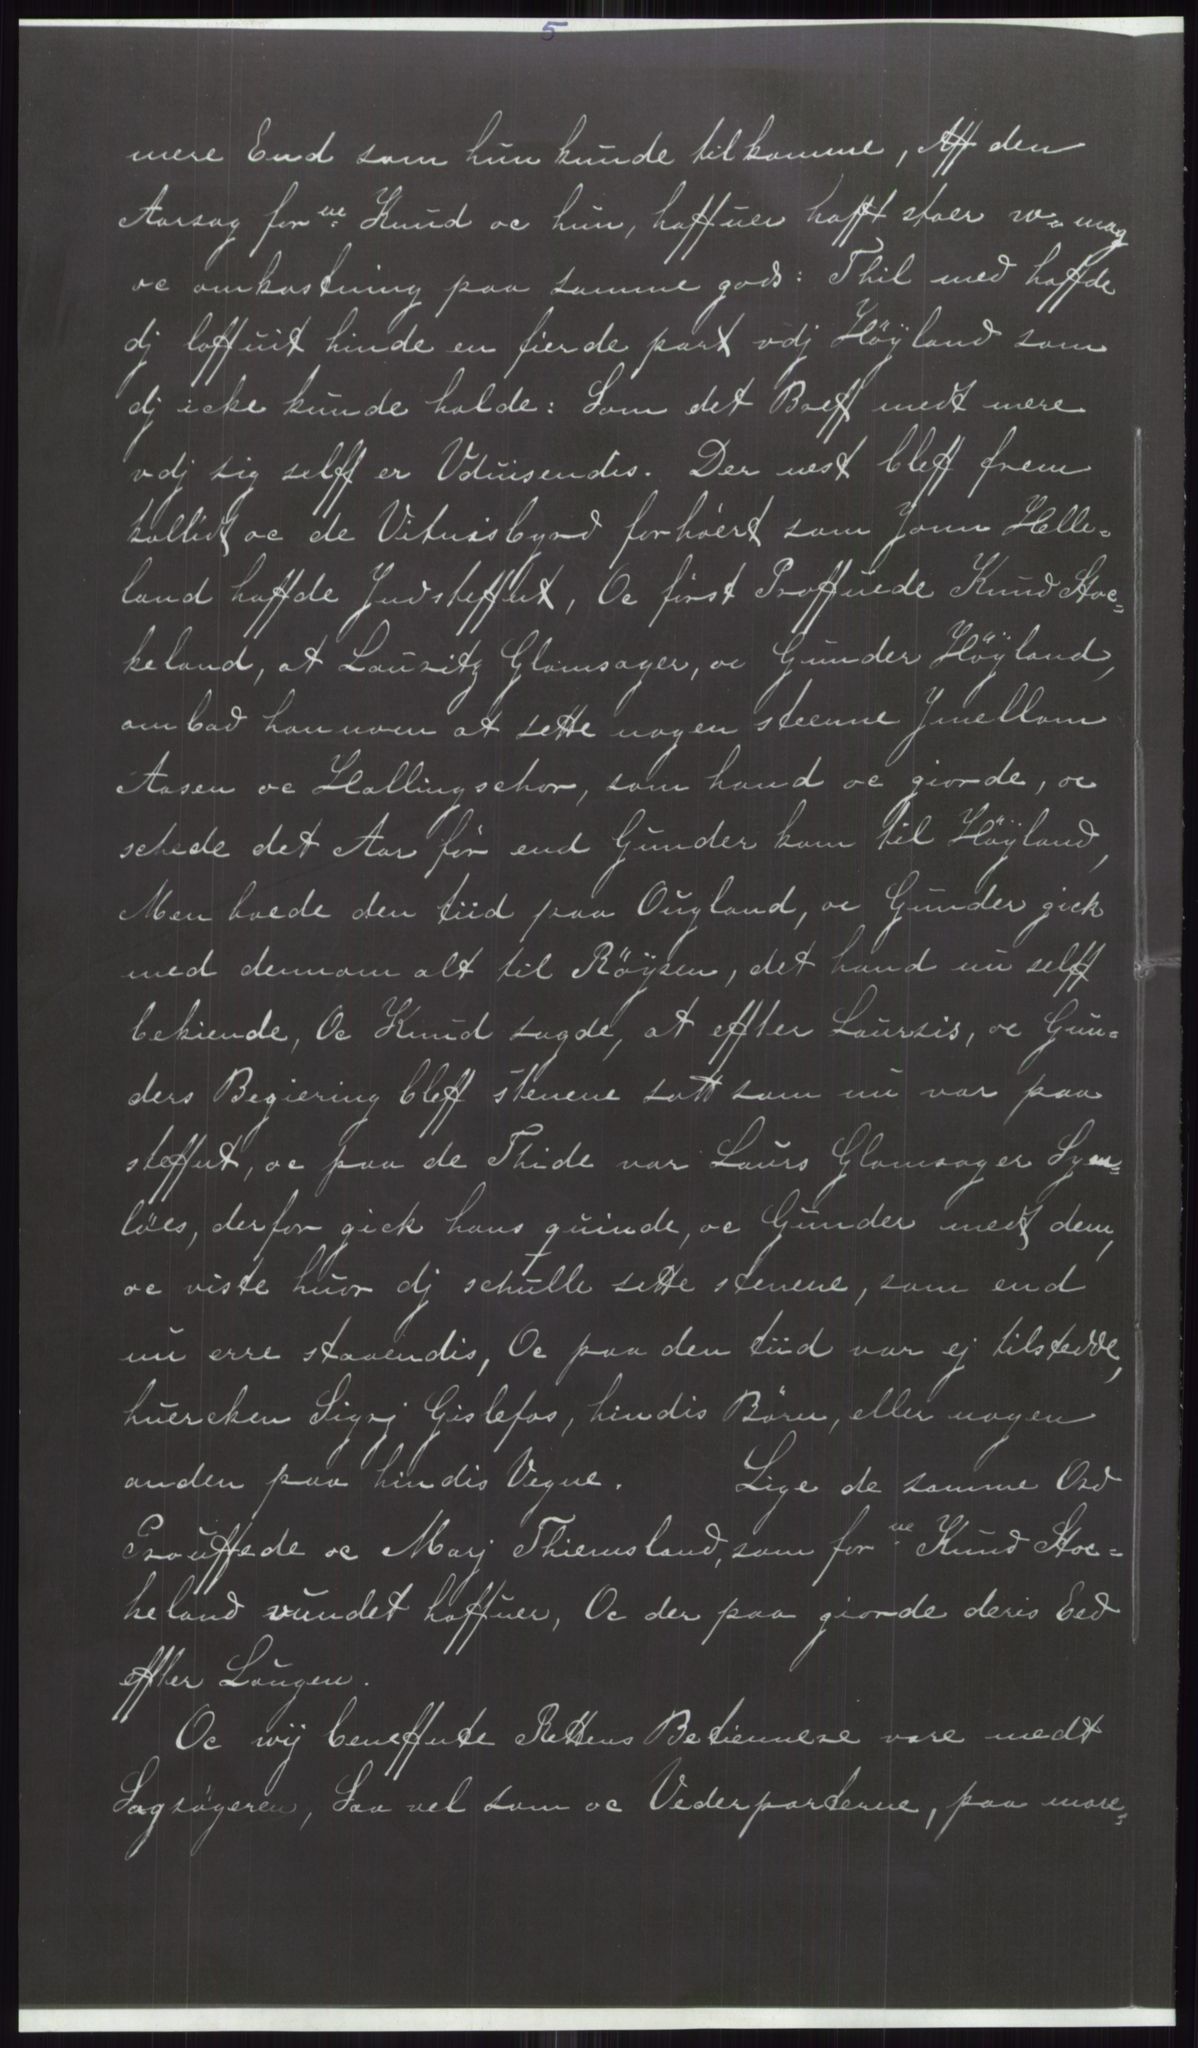 5
mere End som hun kunde tilkomme, Aff den
Aarsag for ne: Knud oc hun, haffuer hafft stoer w=mag
oc omkostning paa samme gods: Thil med haffde
dj loffuit hinde en fierde part vdj Höÿland som
dj icke kunde holde: Som det Breff medt mere
vdj sig selff er Vduisendis. Der nest bleff frem
kallidt oc de Vitnisbyrd forhöert som Jonn Helle=
land haffde Jndsteffnt, Oc först Proffuede Knud Stoc=
keland, at Lauritz Glamsager, oc Gunder Höÿland,
ombad hannom at sette nogen steenne Jmellom
Aasen oc Hallingschor, som hand oc giorde, oc
schede det Aar för end Gunder kom til Höÿland,
Men boede den tiid paa Ougland, oc Gunder gick
med dennom alt til Röÿsen, det hand nu selff
bekiende, Oc Knud sagde, at effter Laursis, oc Gun=
ders Begiering bleff stenene satt som nu var paa
steffnt, oc paa de Thide var Laurs Glamsager Syn=
löes, derfor gick hans quinde, oc Gunder medt dem,
oc viste huor dj schulle sette stenene, som end
nu erre staaendis, Oc paa den tiid var ej tilstedde,
huercken Sigrj Gislefos, hindis Börn, eller nogen
anden paa hindis Vegne. Lige de samme Ord
Prouffede oc Marj Thiemsland, som for ne: Knud Stoc=
keland vundet haffuer, Oc der paa giorde deris Eed
effter Lougen.
Oc wij beneffnte Rettens Betiennere vare medt
Sagsögeren, Saa vel som oc Vederparterne, paa mare=